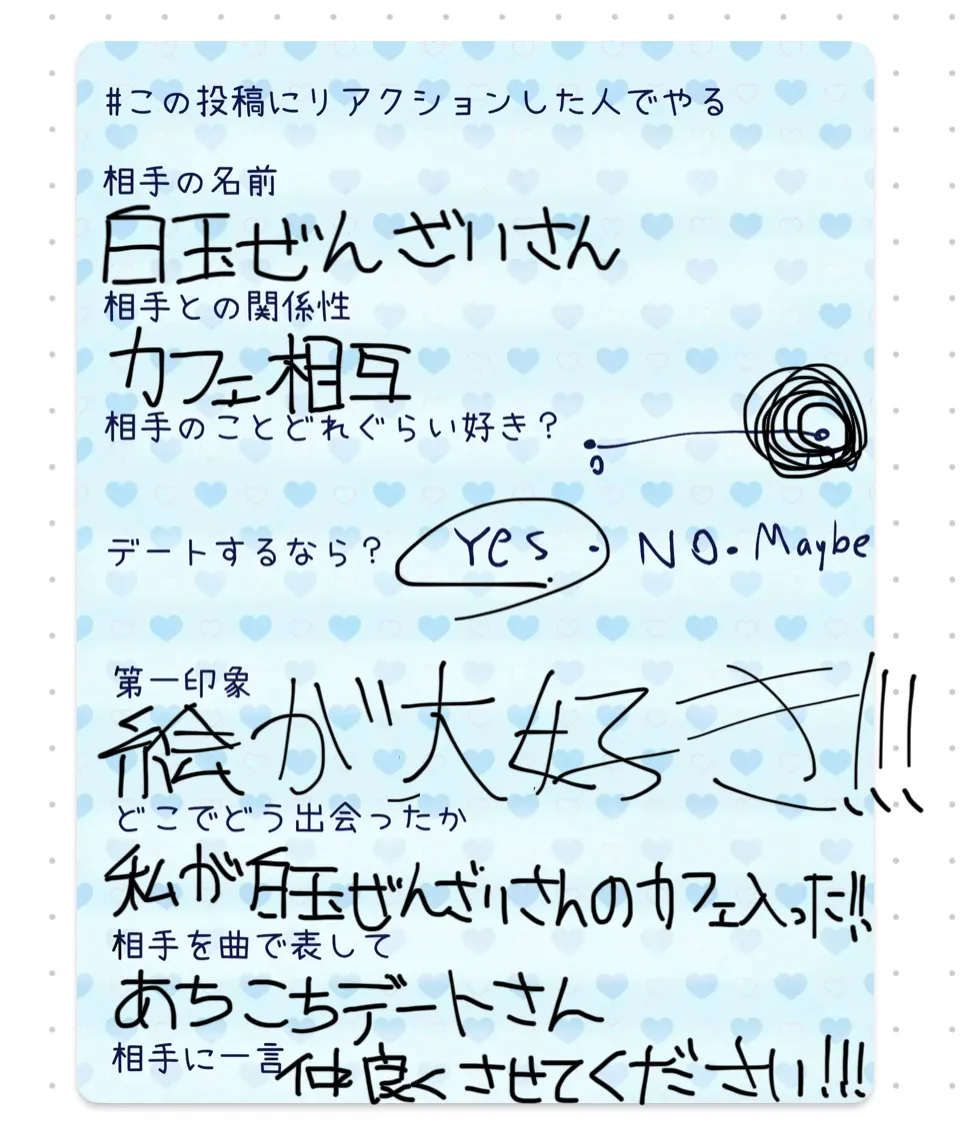 #この投稿にリアクションした人でやる
相手の名前
白玉ぜんざいさん
相手との関係性
カフェ相互
相手のことどれぐらい好き？
0
デートするなら？ Yes・NO・Maybe
第一印象
絵が大好き!!!
どこでどう出会ったか
私が白玉ぜんざいさんのカフェ入った!!
相手を曲で表して
あちこちデートさん
相手に一言
仲良くさせてください!!!